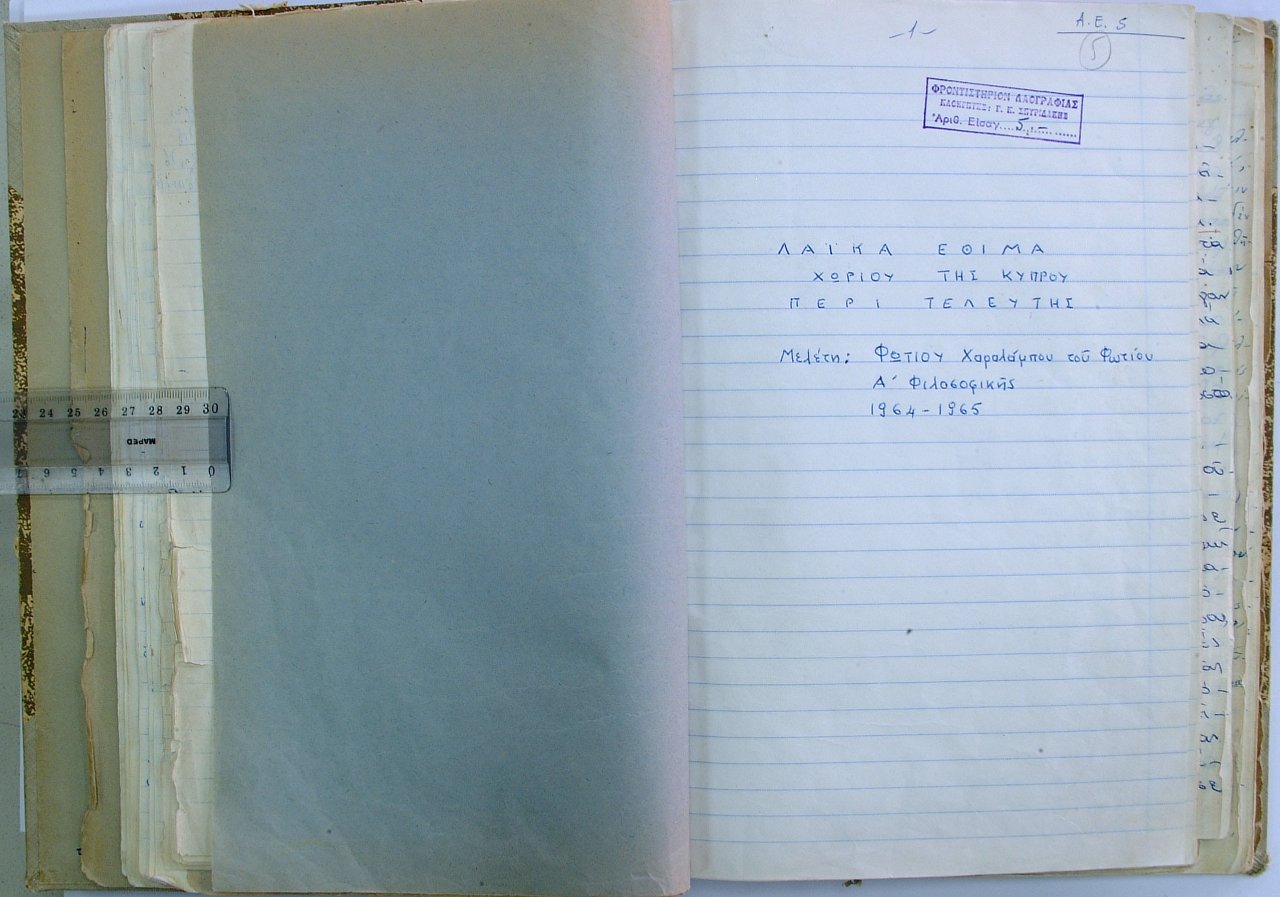 -1-
Α.Ε. 5
5
ΦΡΟΝΤΙΣΤΗΡΙΟΝ ΛΑΟΓΡΑΦΙΑΣ
ΚΑΘΗΓΗΤΗΣ: Γ. Κ. ΣΠΥΡΙΔΑΚΗΣ
Ἀριθ. Εἰσαγ.... 5 ........
ΛΑΪΚΑ ΕΘΙΜΑ
ΧΩΡΙΟΥ ΤΗΣ ΚΥΠΡΟΥ
ΠΕΡΙ ΤΕΛΕΥΤΗΣ
Μελέτη: ΦΩΤΙΟΥ Χαραλάμπου τοῦ Φωτίου
Α' Φιλοσοφικῆς
1964-1965
23 24 25 26 27 28 29 30
MAPED
7 6 5 4 3 2 1 0